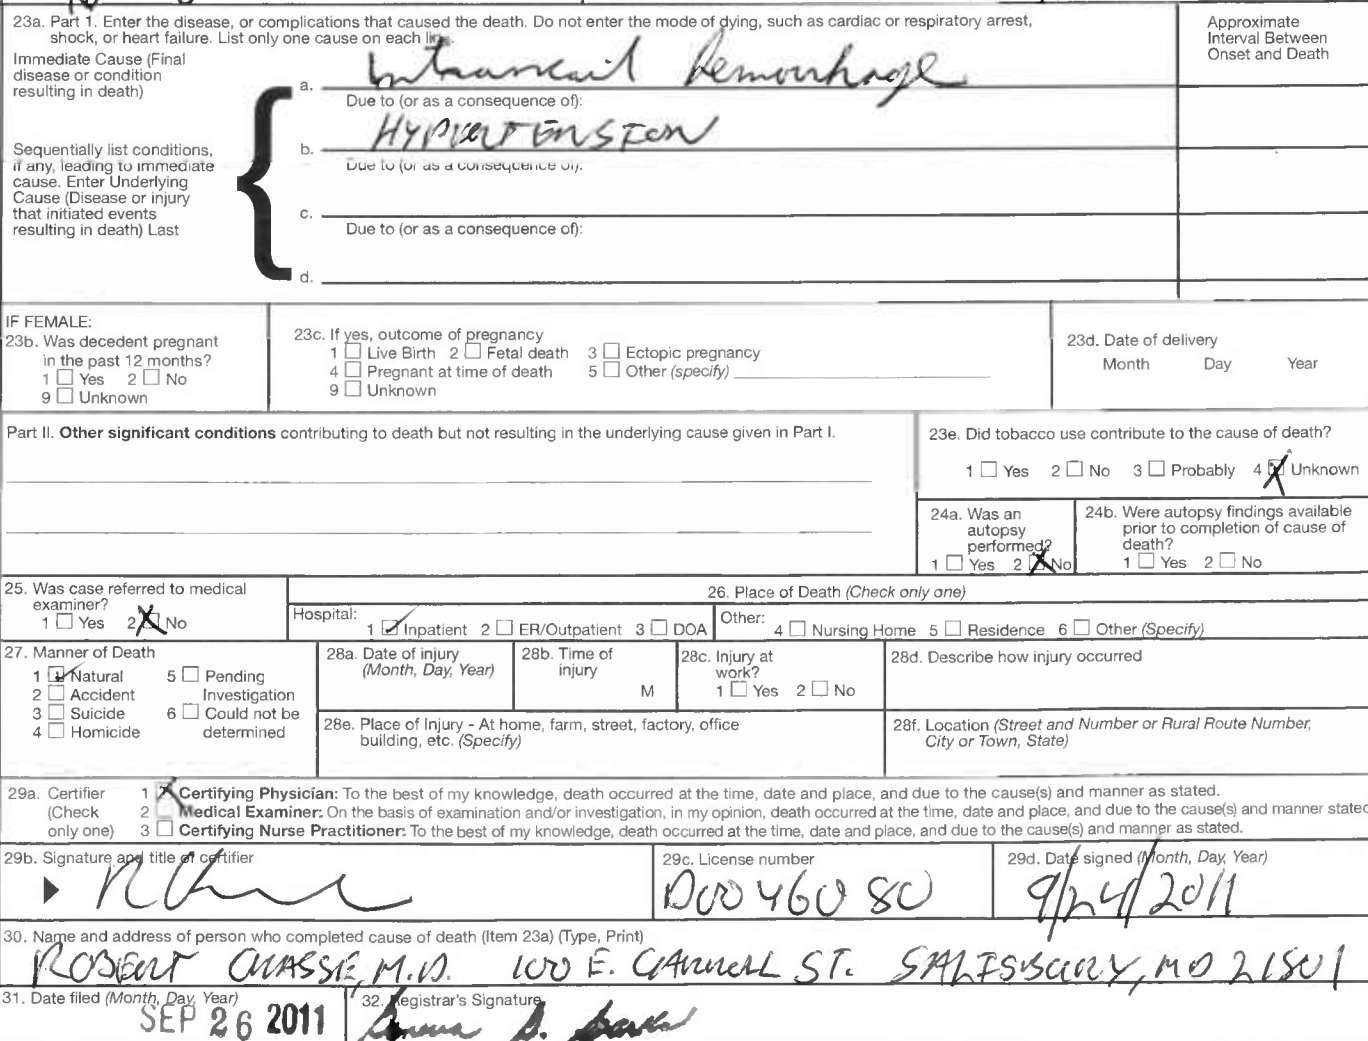 23a. Part 1. Enter the disease, or complications that caused the death. Do not enter the mode of dying, such as cardiac or respiratory arrest,
shock, or heart failure. List only one cause on each line.
Approximate
Interval Between
Onset and Death
Immediate Cause (Final
disease or condition
resulting in death)
a. hemorrhage
Due to (or as a consequence of):
Sequentially list conditions,
if any, leading to immediate
cause. Enter Underlying
Cause (Disease or injury
that initiated events
resulting in death) Last
b. HYPERTENSION
Due to (or as a consequence of):
c.
Due to (or as a consequence of):
d.
IF FEMALE:
23b. Was decedent pregnant
in the past 12 months?
1 Yes 2 No
9 Unknown
23c. If yes, outcome of pregnancy
1 Live Birth 2 Fetal death 3 Ectopic pregnancy
4 Pregnant at time of death 5 Other (specify)
9 Unknown
23d. Date of delivery
Month Day Year
Part II. Other significant conditions contributing to death but not resulting in the underlying cause given in Part I.
23e. Did tobacco use contribute to the cause of death?
1 Yes 2 No 3 Probably 4 X Unknown
24a. Was an
autopsy
performed?
1 Yes 2 X No
24b. Were autopsy findings available
prior to completion of cause of
death?
1 Yes 2 No
25. Was case referred to medical
examiner?
1 Yes 2 X No
26. Place of Death (Check only one)
Hospital:
1 ✓ Inpatient 2 ER/Outpatient 3 DOA
Other:
4 Nursing Home 5 Residence 6 Other (Specify)
27. Manner of Death
1 ✓ Natural 5 Pending
2 Accident Investigation
3 Suicide 6 Could not be
4 Homicide determined
28a. Date of injury
(Month, Day, Year)
28b. Time of
injury
M
28c. Injury at
work?
1 Yes 2 No
28d. Describe how injury occurred
28e. Place of Injury - At home, farm, street, factory, office
building, etc. (Specify)
28f. Location (Street and Number or Rural Route Number,
City or Town, State)
29a. Certifier
(Check
only one)
1 X Certifying Physician: To the best of my knowledge, death occurred at the time, date and place, and due to the cause(s) and manner as stated.
2 Medical Examiner: On the basis of examination and/or investigation, in my opinion, death occurred at the time, date and place, and due to the cause(s) and manner stated
3 Certifying Nurse Practitioner: To the best of my knowledge, death occurred at the time, date and place, and due to the cause(s) and manner as stated.
29b. Signature and title of certifier
29c. License number
D0046080
29d. Date signed (Month, Day, Year)
9/24/2011
30. Name and address of person who completed cause of death (Item 23a) (Type, Print)
ROBERT CHASSE, M.D. 100 E. CARROLL ST. SALISBURY, MD 21801
31. Date filed (Month, Day, Year)
SEP 26 2011
32. Registrar's Signature